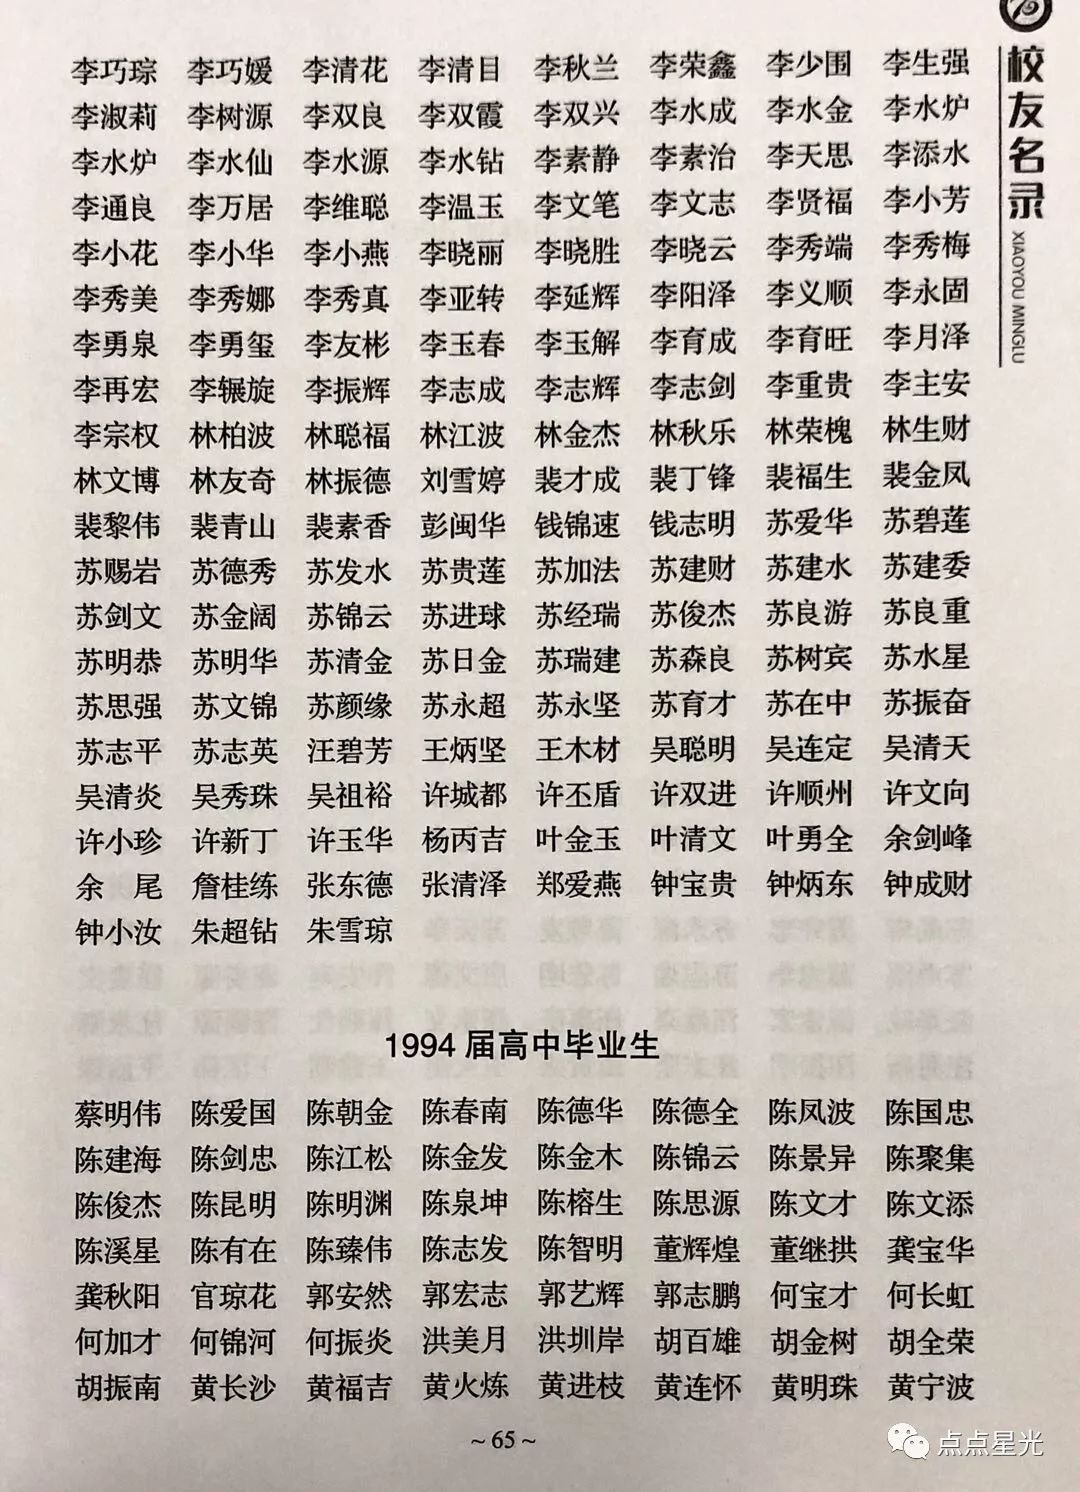 校友名录
XIAOYOU MINGLU
李巧琮 李巧媛 李清花 李清目 李秋兰 李荣鑫 李少围 李生强
李淑莉 李树源 李双良 李双霞 李双兴 李水成 李水金 李水炉
李水炉 李水仙 李水源 李水钻 李素静 李素治 李天思 李添水
李通良 李万居 李维聪 李温玉 李文笔 李文志 李贤福 李小芳
李小花 李小华 李小燕 李晓丽 李晓胜 李晓云 李秀端 李秀梅
李秀美 李秀娜 李秀真 李亚转 李延辉 李阳泽 李义顺 李永固
李勇泉 李勇玺 李友彬 李玉春 李玉解 李育成 李育旺 李月泽
李再宏 李辗旋 李振辉 李志成 李志辉 李志剑 李重贵 李主安
李宗权 林柏波 林聪福 林江波 林金杰 林秋乐 林荣槐 林生财
林文博 林友奇 林振德 刘雪婷 裴才成 裴丁锋 裴福生 裴金凤
裴黎伟 裴青山 裴素香 彭闽华 钱锦速 钱志明 苏爱华 苏碧莲
苏赐岩 苏德秀 苏发水 苏贵莲 苏加法 苏建财 苏建水 苏建委
苏剑文 苏金阔 苏锦云 苏进球 苏经瑞 苏俊杰 苏良游 苏良重
苏明恭 苏明华 苏清金 苏日金 苏瑞建 苏森良 苏树宾 苏水星
苏思强 苏文锦 苏颜缘 苏永超 苏永坚 苏育才 苏在中 苏振奋
苏志平 苏志英 汪碧芳 王炳坚 王木材 吴聪明 吴连定 吴清天
吴清炎 吴秀珠 吴祖裕 许城都 许丕盾 许双进 许顺州 许文向
许小珍 许新丁 许玉华 杨丙吉 叶金玉 叶清文 叶勇全 余剑峰
余 尾 詹桂练 张东德 张清泽 郑爱燕 钟宝贵 钟炳东 钟成财
钟小汝 朱超钻 朱雪琼
1994 届高中毕业生
蔡明伟 陈爱国 陈朝金 陈春南 陈德华 陈德全 陈凤波 陈国忠
陈建海 陈剑忠 陈江松 陈金发 陈金木 陈锦云 陈景异 陈聚集
陈俊杰 陈昆明 陈明渊 陈泉坤 陈榕生 陈思源 陈文才 陈文添
陈溪星 陈有在 陈臻伟 陈志发 陈智明 董辉煌 董继拱 龚宝华
龚秋阳 官琼花 郭安然 郭宏志 郭艺辉 郭志鹏 何宝才 何长虹
何加才 何锦河 何振炎 洪美月 洪圳岸 胡百雄 胡金树 胡全荣
胡振南 黄长沙 黄福吉 黄火炼 黄进枝 黄连怀 黄明珠 黄宁波
~ 65 ~
点点星光